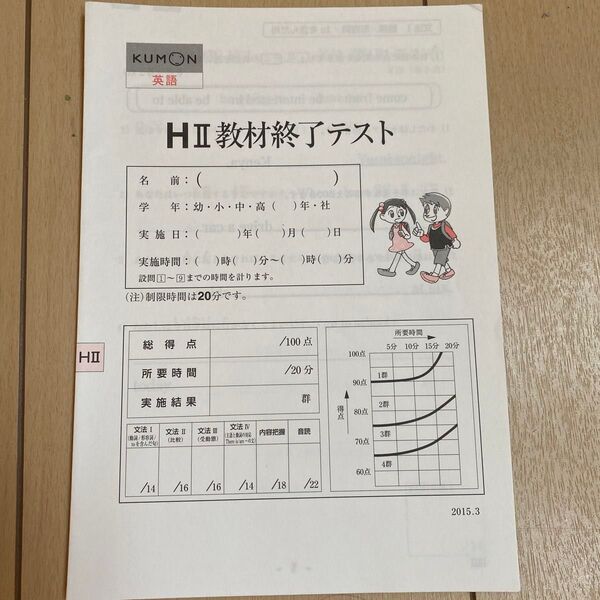 KUMON
英語
HⅡ教材終了テスト
名 前：( )
学 年：幼・小・中・高( )年・社
実 施 日：( )年( )月( )日
実施時間：( )時( )分〜( )時( )分
設問1〜9までの時間を計ります。
(注)制限時間は20分です。
HⅡ
総 得 点 /100点
所要時間 /20分
実施結果 群
文法Ⅰ 文法Ⅱ 文法Ⅲ 文法Ⅳ 内容把握 音読
(動詞/形容詞/toを含んだ句) (比較) (受動態)
/14 /16 /16 /14 /18 /22
所要時間
5分 10分 15分 20分
100点
90点
80点
70点
60点
得点
1群
2群
3群
4群
2015.3